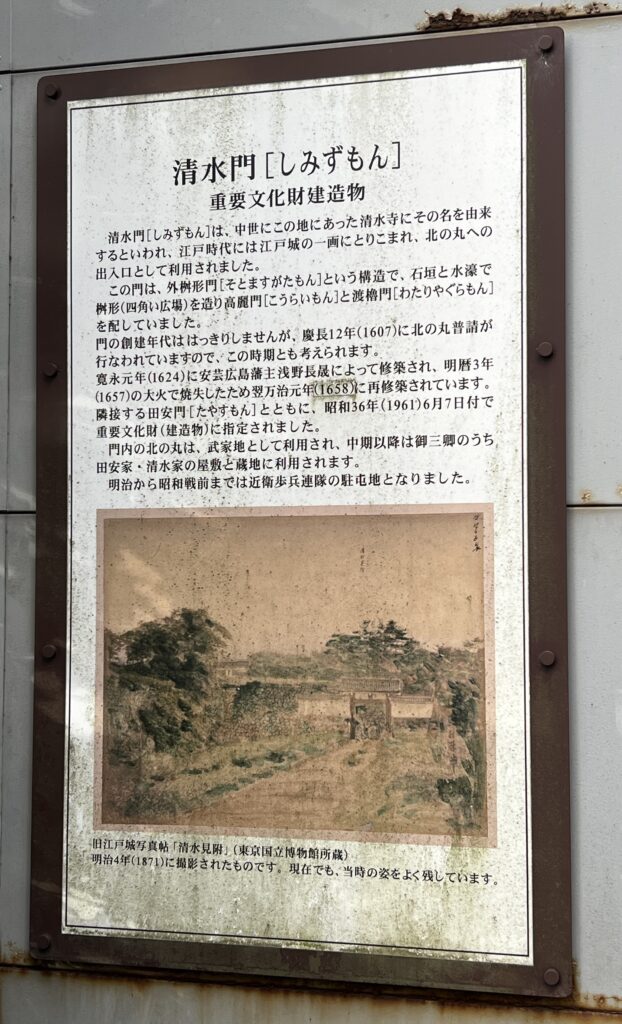 清水門[しみずもん]
重要文化財建造物
清水門[しみずもん]は、中世にこの地にあった清水寺にその名を由来
するといわれ、江戸時代には江戸城の一画にとりこまれ、北の丸への
出入口として利用されました。
この門は、外桝形門[そとますがたもん]という構造で、石垣と水濠で
桝形(四角い広場)を造り高麗門[こうらいもん]と渡櫓門[わたりやぐらもん]
を配していました。
門の創建年代ははっきりしませんが、慶長12年(1607)に北の丸普請が
行なわれていますので、この時期とも考えられます。
寛永元年(1624)に安芸広島藩主浅野長晟によって修築され、明暦3年
(1657)の大火で焼失したため翌万治元年(1658)に再修築されています。
隣接する田安門[たやすもん]とともに、昭和36年(1961)6月7日付で
重要文化財(建造物)に指定されました。
門内の北の丸は、武家地として利用され、中期以降は御三卿のうち
田安家・清水家の屋敷と蔵地に利用されます。
明治から昭和戦前までは近衛歩兵連隊の駐屯地となりました。
旧江戸城写真帖「清水見附」(東京国立博物館所蔵)
明治4年(1871)に撮影されたものです。現在でも、当時の姿をよく残しています。